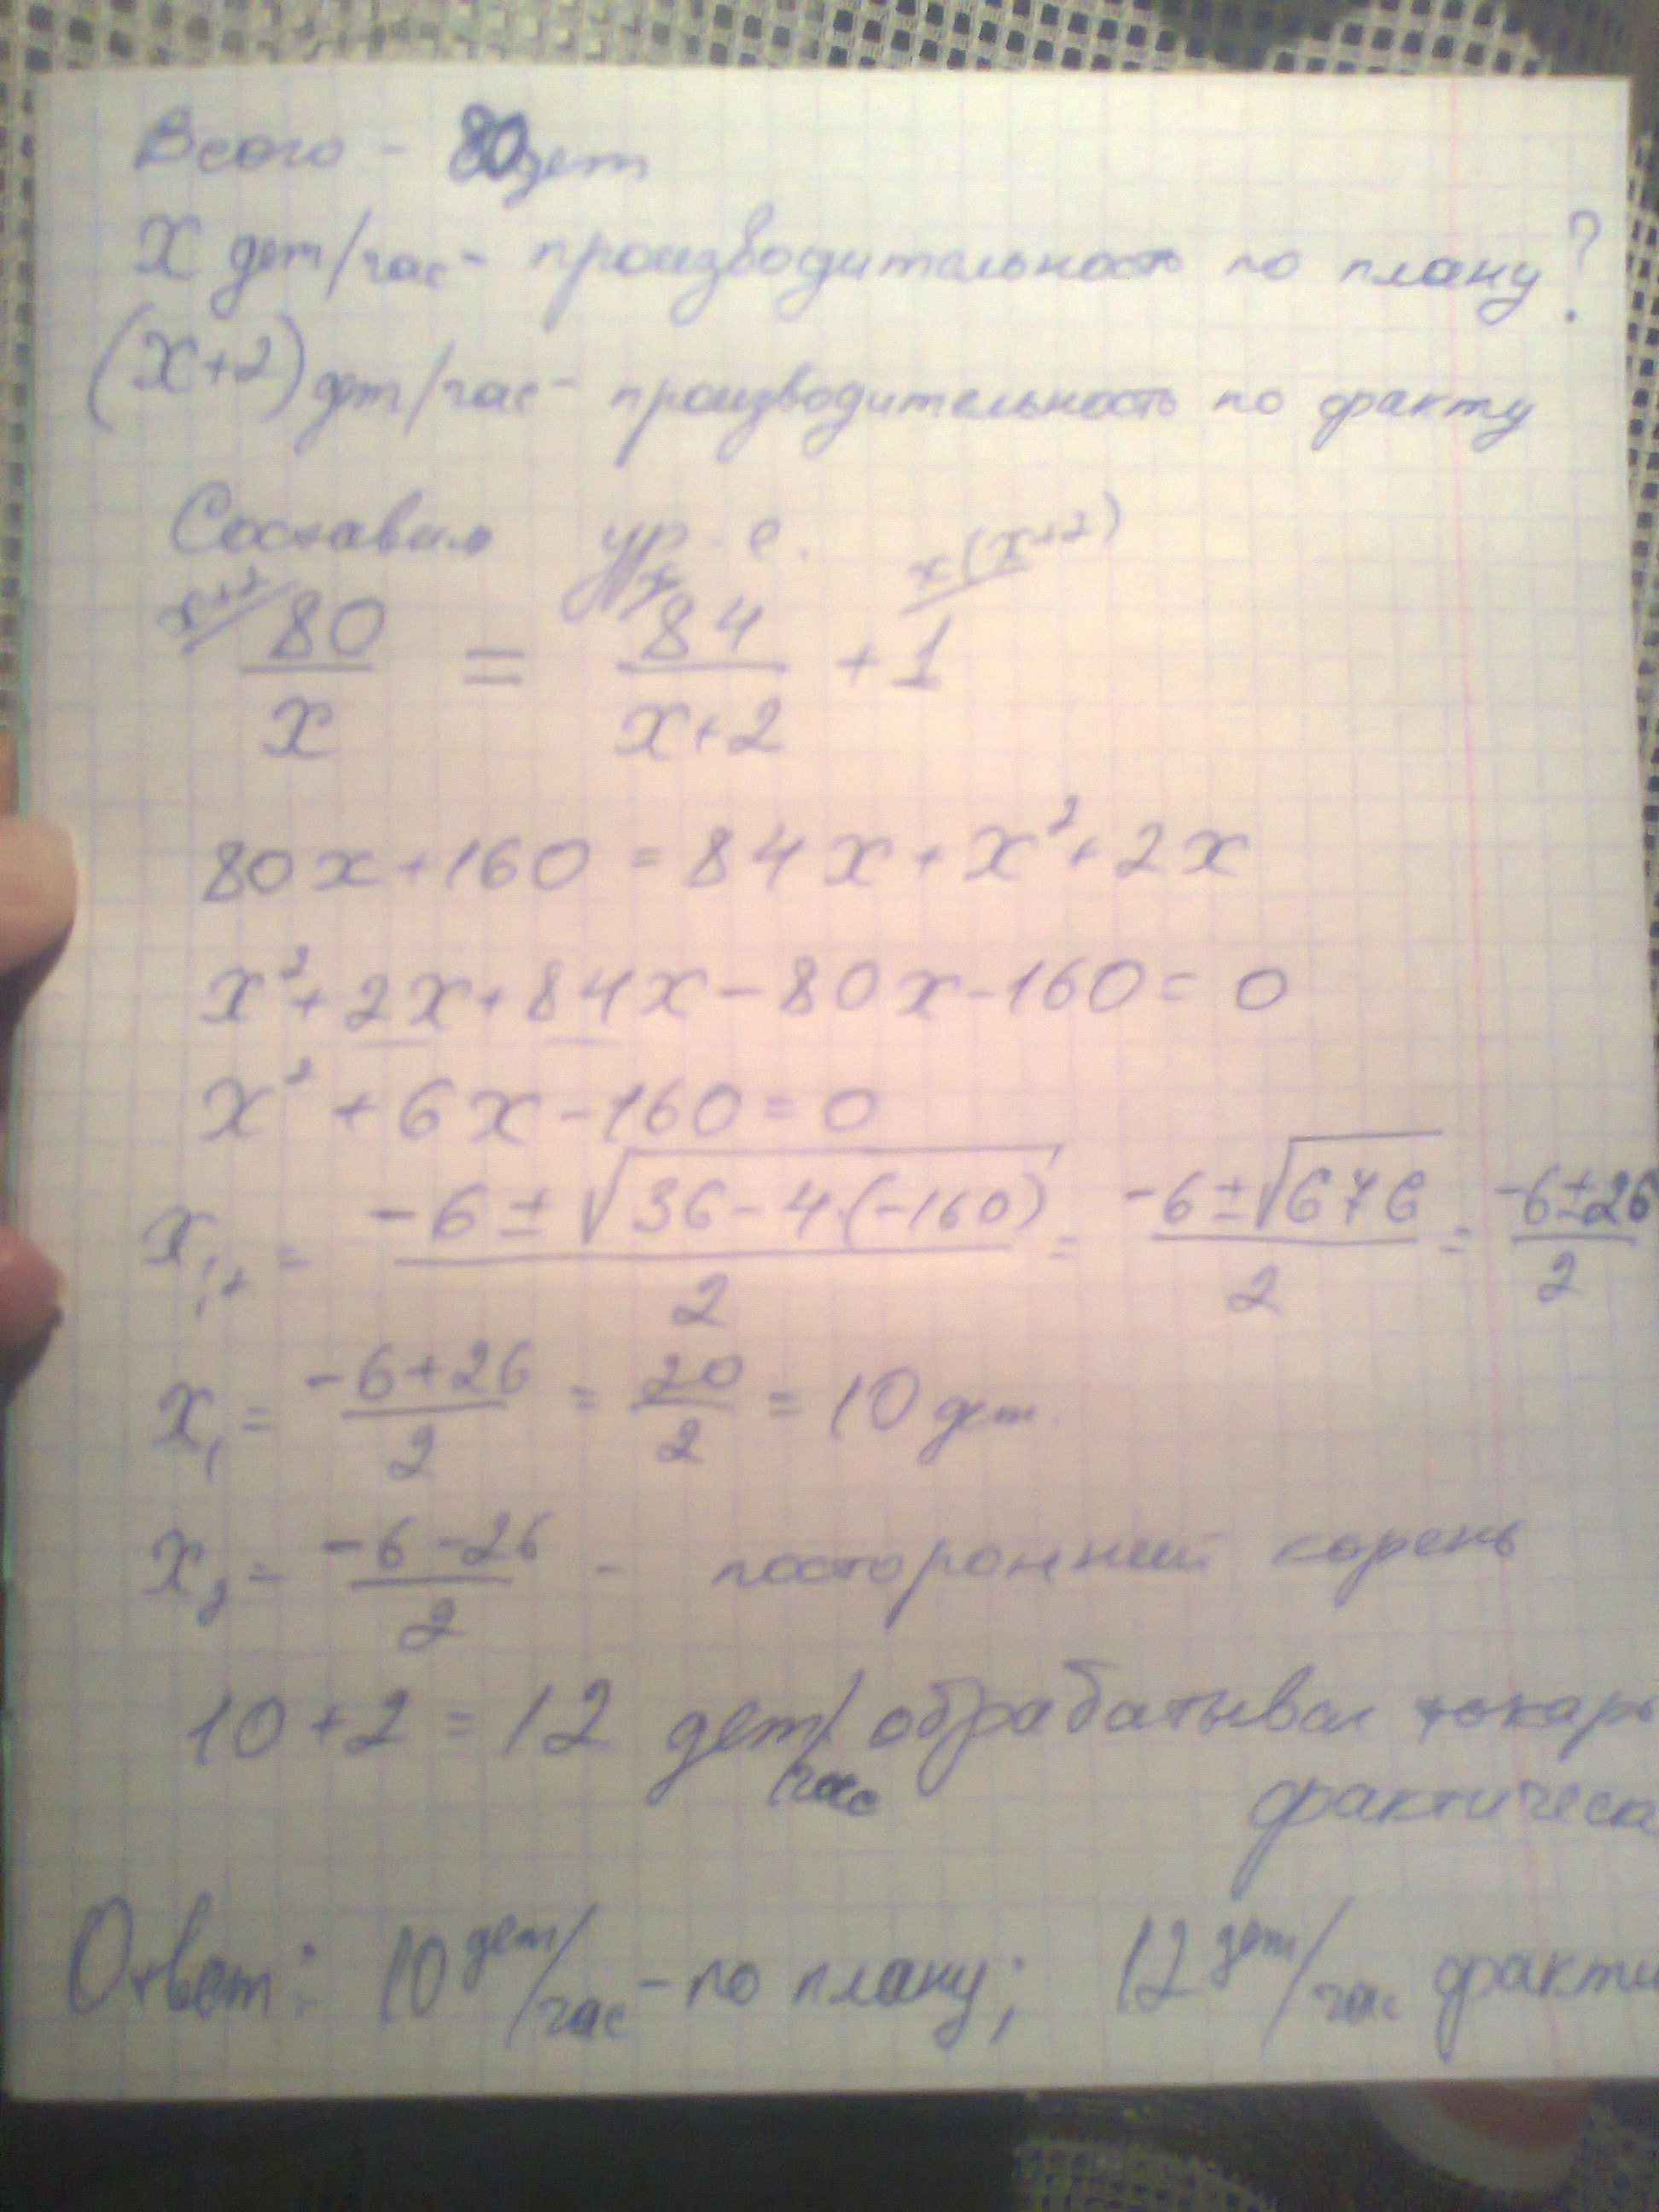 Всего - 80 дет
X дет/час - производительность по плану ?
(X+2) дет/час - производительность по факту
Составим ур-е.
x+2/ 80/x = x/ 84/(x+2) + x(x+2)/ 1
80x+160 = 84x + x²+2x
x²+2x+84x-80x-160=0
x²+6x-160=0
x₁,₂ = (-6±√(36-4·(-160)))/2 = (-6±√676)/2 = (-6±26)/2
x₁ = (-6+26)/2 = 20/2 = 10 дет.
x₂ = (-6-26)/2 - посторонний корень
10+2=12 дет/час обрабатывал токарь
фактическ
Ответ: 10 дет/час - по плану; 12 дет/час факти